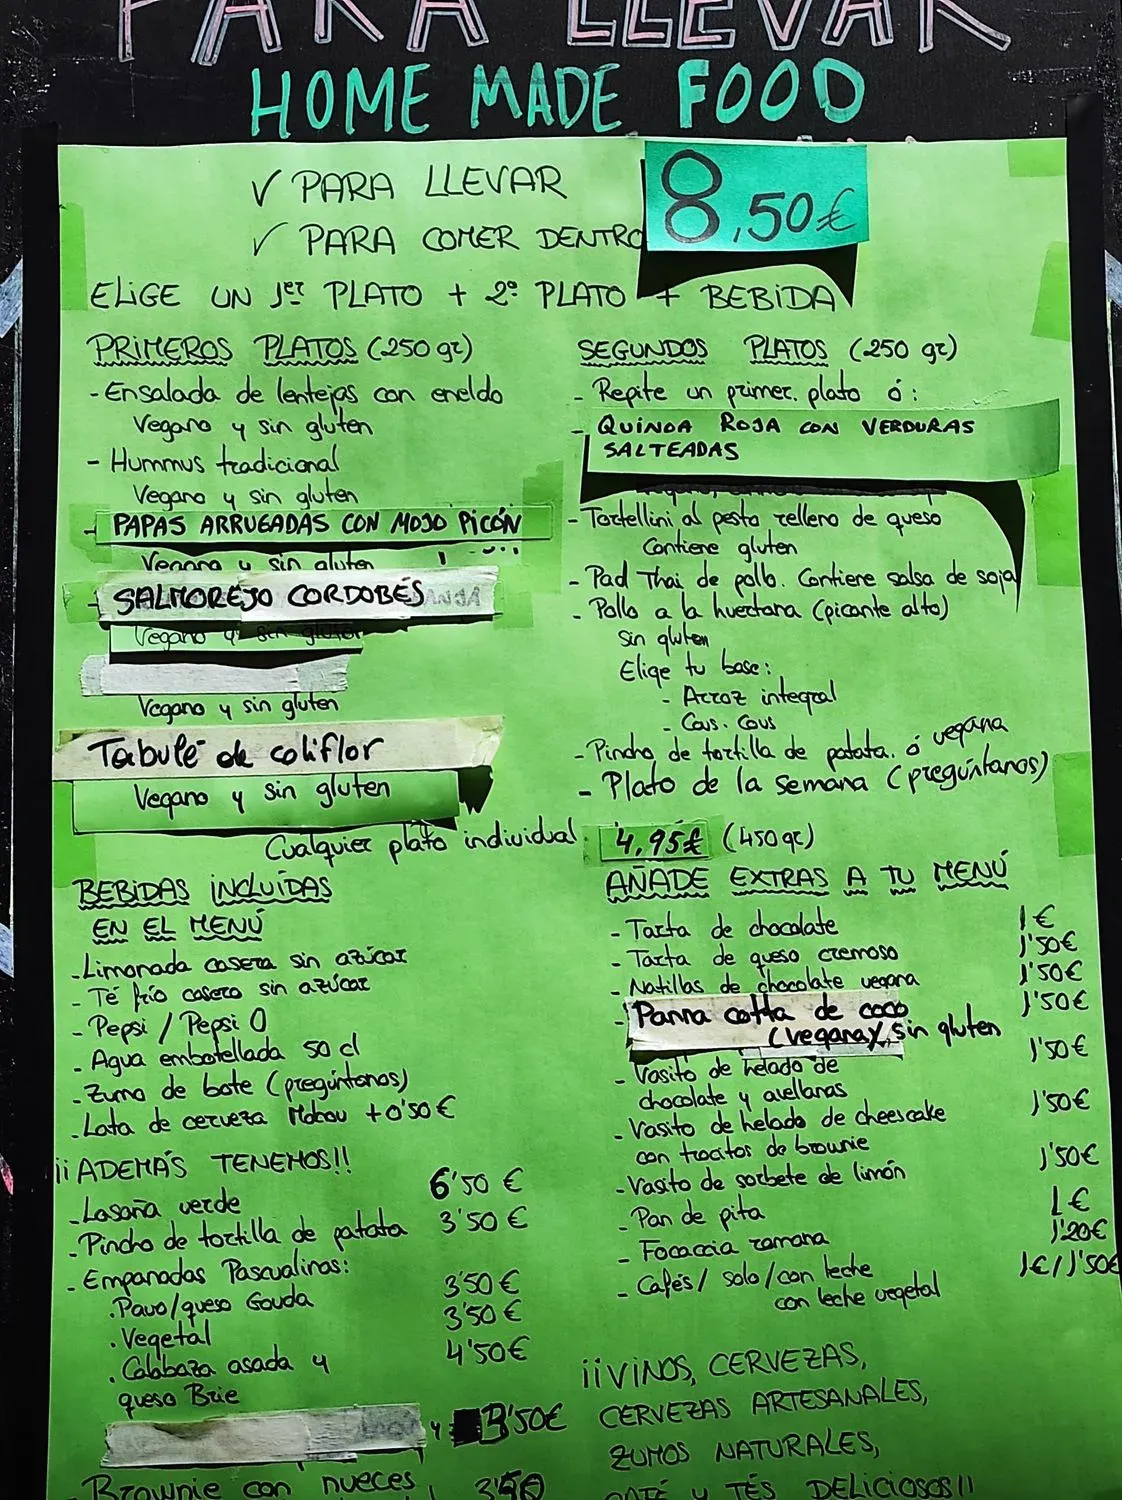 PARA LLEVAR
HOME MADE FOOD
✓ PARA LLEVAR
8,50€
✓ PARA COMER DENTRO
ELIGE UN 1er PLATO + 2º PLATO + BEBIDA
PRIMEROS PLATOS (250 gr)
- Ensalada de lentejas con eneldo
Vegano y sin gluten
- Hummus tradicional
Vegano y sin gluten
- PAPAS ARRUGADAS CON MOJO PICÓN
Vegano y sin gluten
- SALMOREJO CORDOBÉS
Vegano y sin gluten
Vegano y sin gluten
Tabulé de coliflor
Vegano y sin gluten
SEGUNDOS PLATOS (250 gr)
- Repite un primer plato ó:
- QUINOA ROJA CON VERDURAS
SALTEADAS
- Tortellini al pesto relleno de queso
Contiene gluten
- Pad Thai de pollo. Contiene salsa de soja
- Pollo a la huertana (picante alto)
Sin gluten
Elige tu base:
- Arroz integral
- Cous. Cous
- Pincho de tortilla de patata. ó vegana
- Plato de la semana (pregúntanos)
Cualquier plato individual 4,95€ (450 gr)
BEBIDAS INCLUÍDAS
EN EL MENÚ
- Limonada casera sin azúcar
- Té frío casero sin azúcar
- Pepsi / Pepsi 0
- Agua embotellada 50 cl
- Zumo de bote (pregúntanos)
- Lata de cerveza Mahou +0'50€
¡¡ADEMÁS TENEMOS!!
- Lasaña verde 6'50 €
- Pincho de tortilla de patata 3'50 €
- Empanadas Pascualinas:
. Pavo/queso Gouda 3'50€
. Vegetal 3'50€
. Calabaza asada y 4'50€
queso Brie
y 3'50€
- Brownie con nueces 3'50
AÑADE EXTRAS A TU MENÚ
- Tarta de chocolate 1€
- Tarta de queso cremoso 1'50€
- Natillas de chocolate vegana 1'50€
- Panna cotta de coco 1'50€
(vegana), sin gluten
- Vasito de helado de 1'50€
chocolate y avellanas
- Vasito de helado de cheescake 1'50€
con trocitos de brownie
- Vasito de sorbete de limón 1'50€
- Pan de pita 1€
- Focaccia romana 1'20€
- Cafés / solo / con leche 1€/1'50€
con leche vegetal
¡¡VINOS, CERVEZAS,
CERVEZAS ARTESANALES,
ZUMOS NATURALES,
CAFÉ y TÉS DELICIOSOS!!